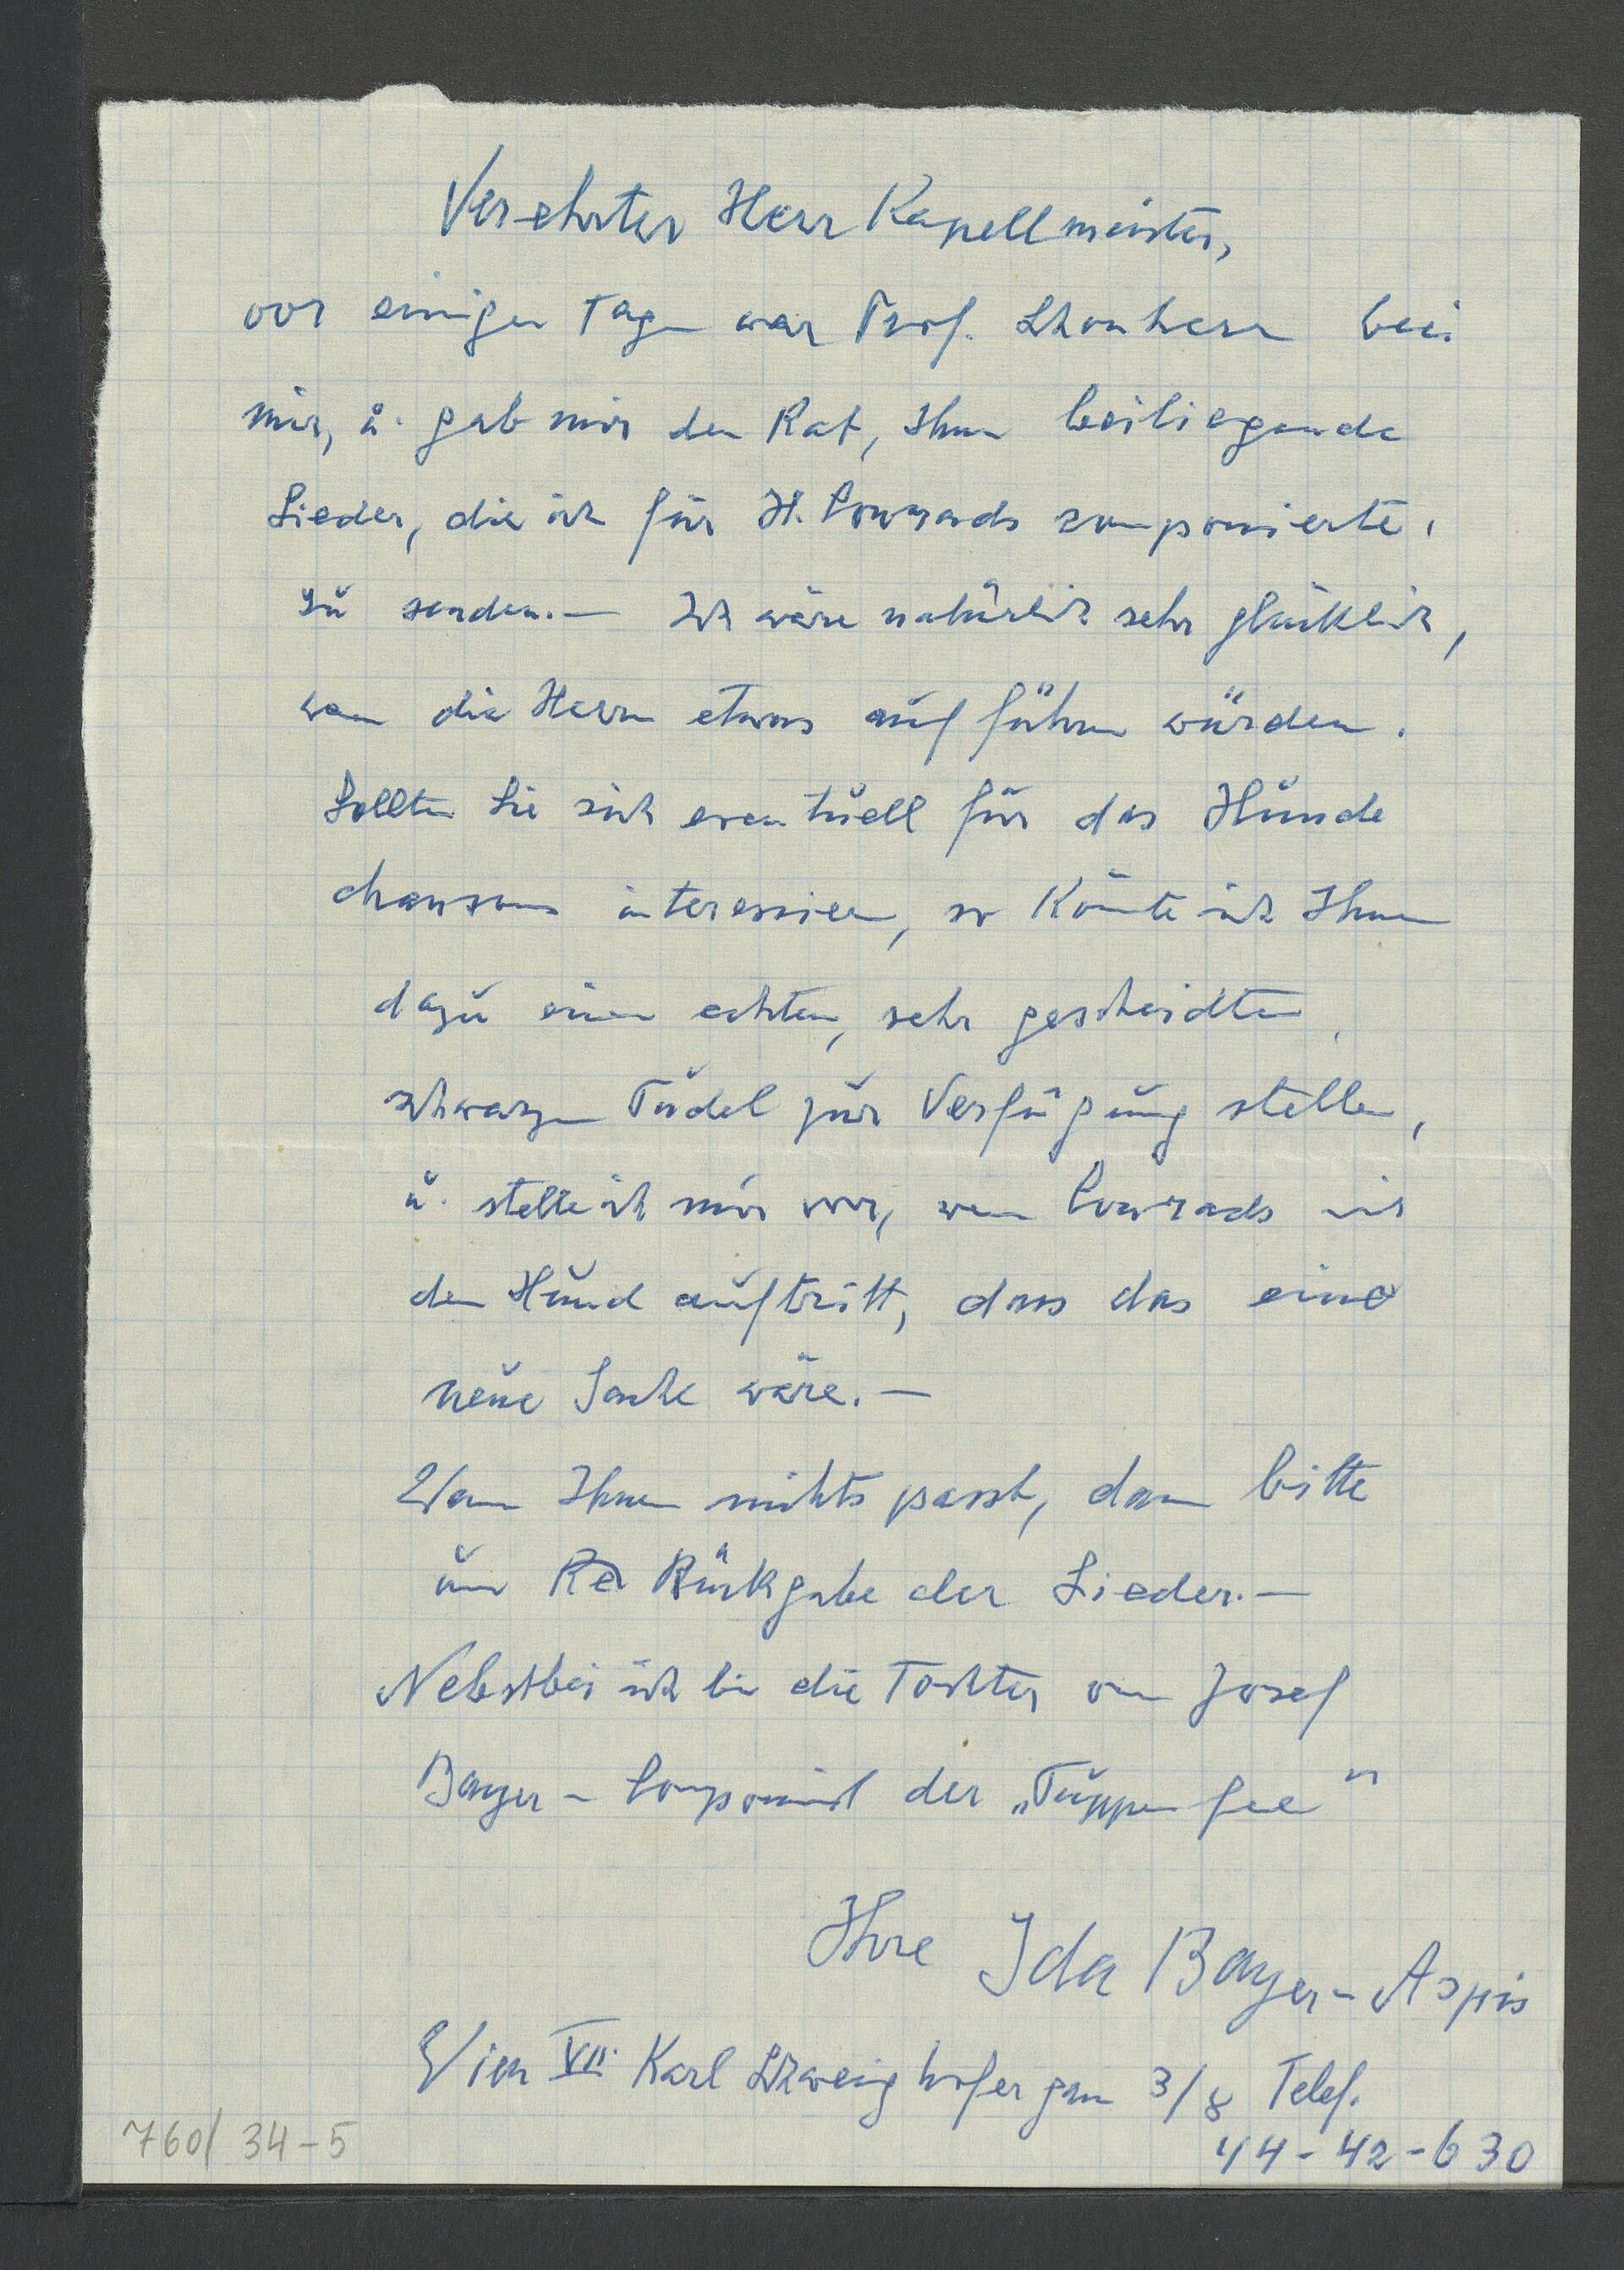 Verehrter Herr Kapellmeister,
vor einigen Tagen war Prof. Schönherr bei
mir, u. gab mir den Rat, Ihnen beiliegende
Lieder, die ich für H. Conrads componierte,
zu senden. — Ich wäre natürlich sehr glücklich,
wenn die Herrn etwas aufführen würden.
Sollten Sie sich eventuell für das Hunde
chanson interessieren, so könnte ich Ihnen
dazu einen echten, sehr gescheidten,
schwarzen Pudel zur Verfügung stellen,
u. stelle ich mir vor, wenn Conrads mit
dem Hund auftritt, dass das eine
neue Sache wäre. —
Wenn Ihnen nichts passt, dann bitte
um Re Rückgabe der Lieder. —
Nebstbei ich bin die Tochter von Josef
Bayer - Componist der „Puppenfee"
Ihre Ida Bayer-Aspis
Wien VII. Karl Schweighofergasse 3/8 Telef.
44-42-630
760/34-5